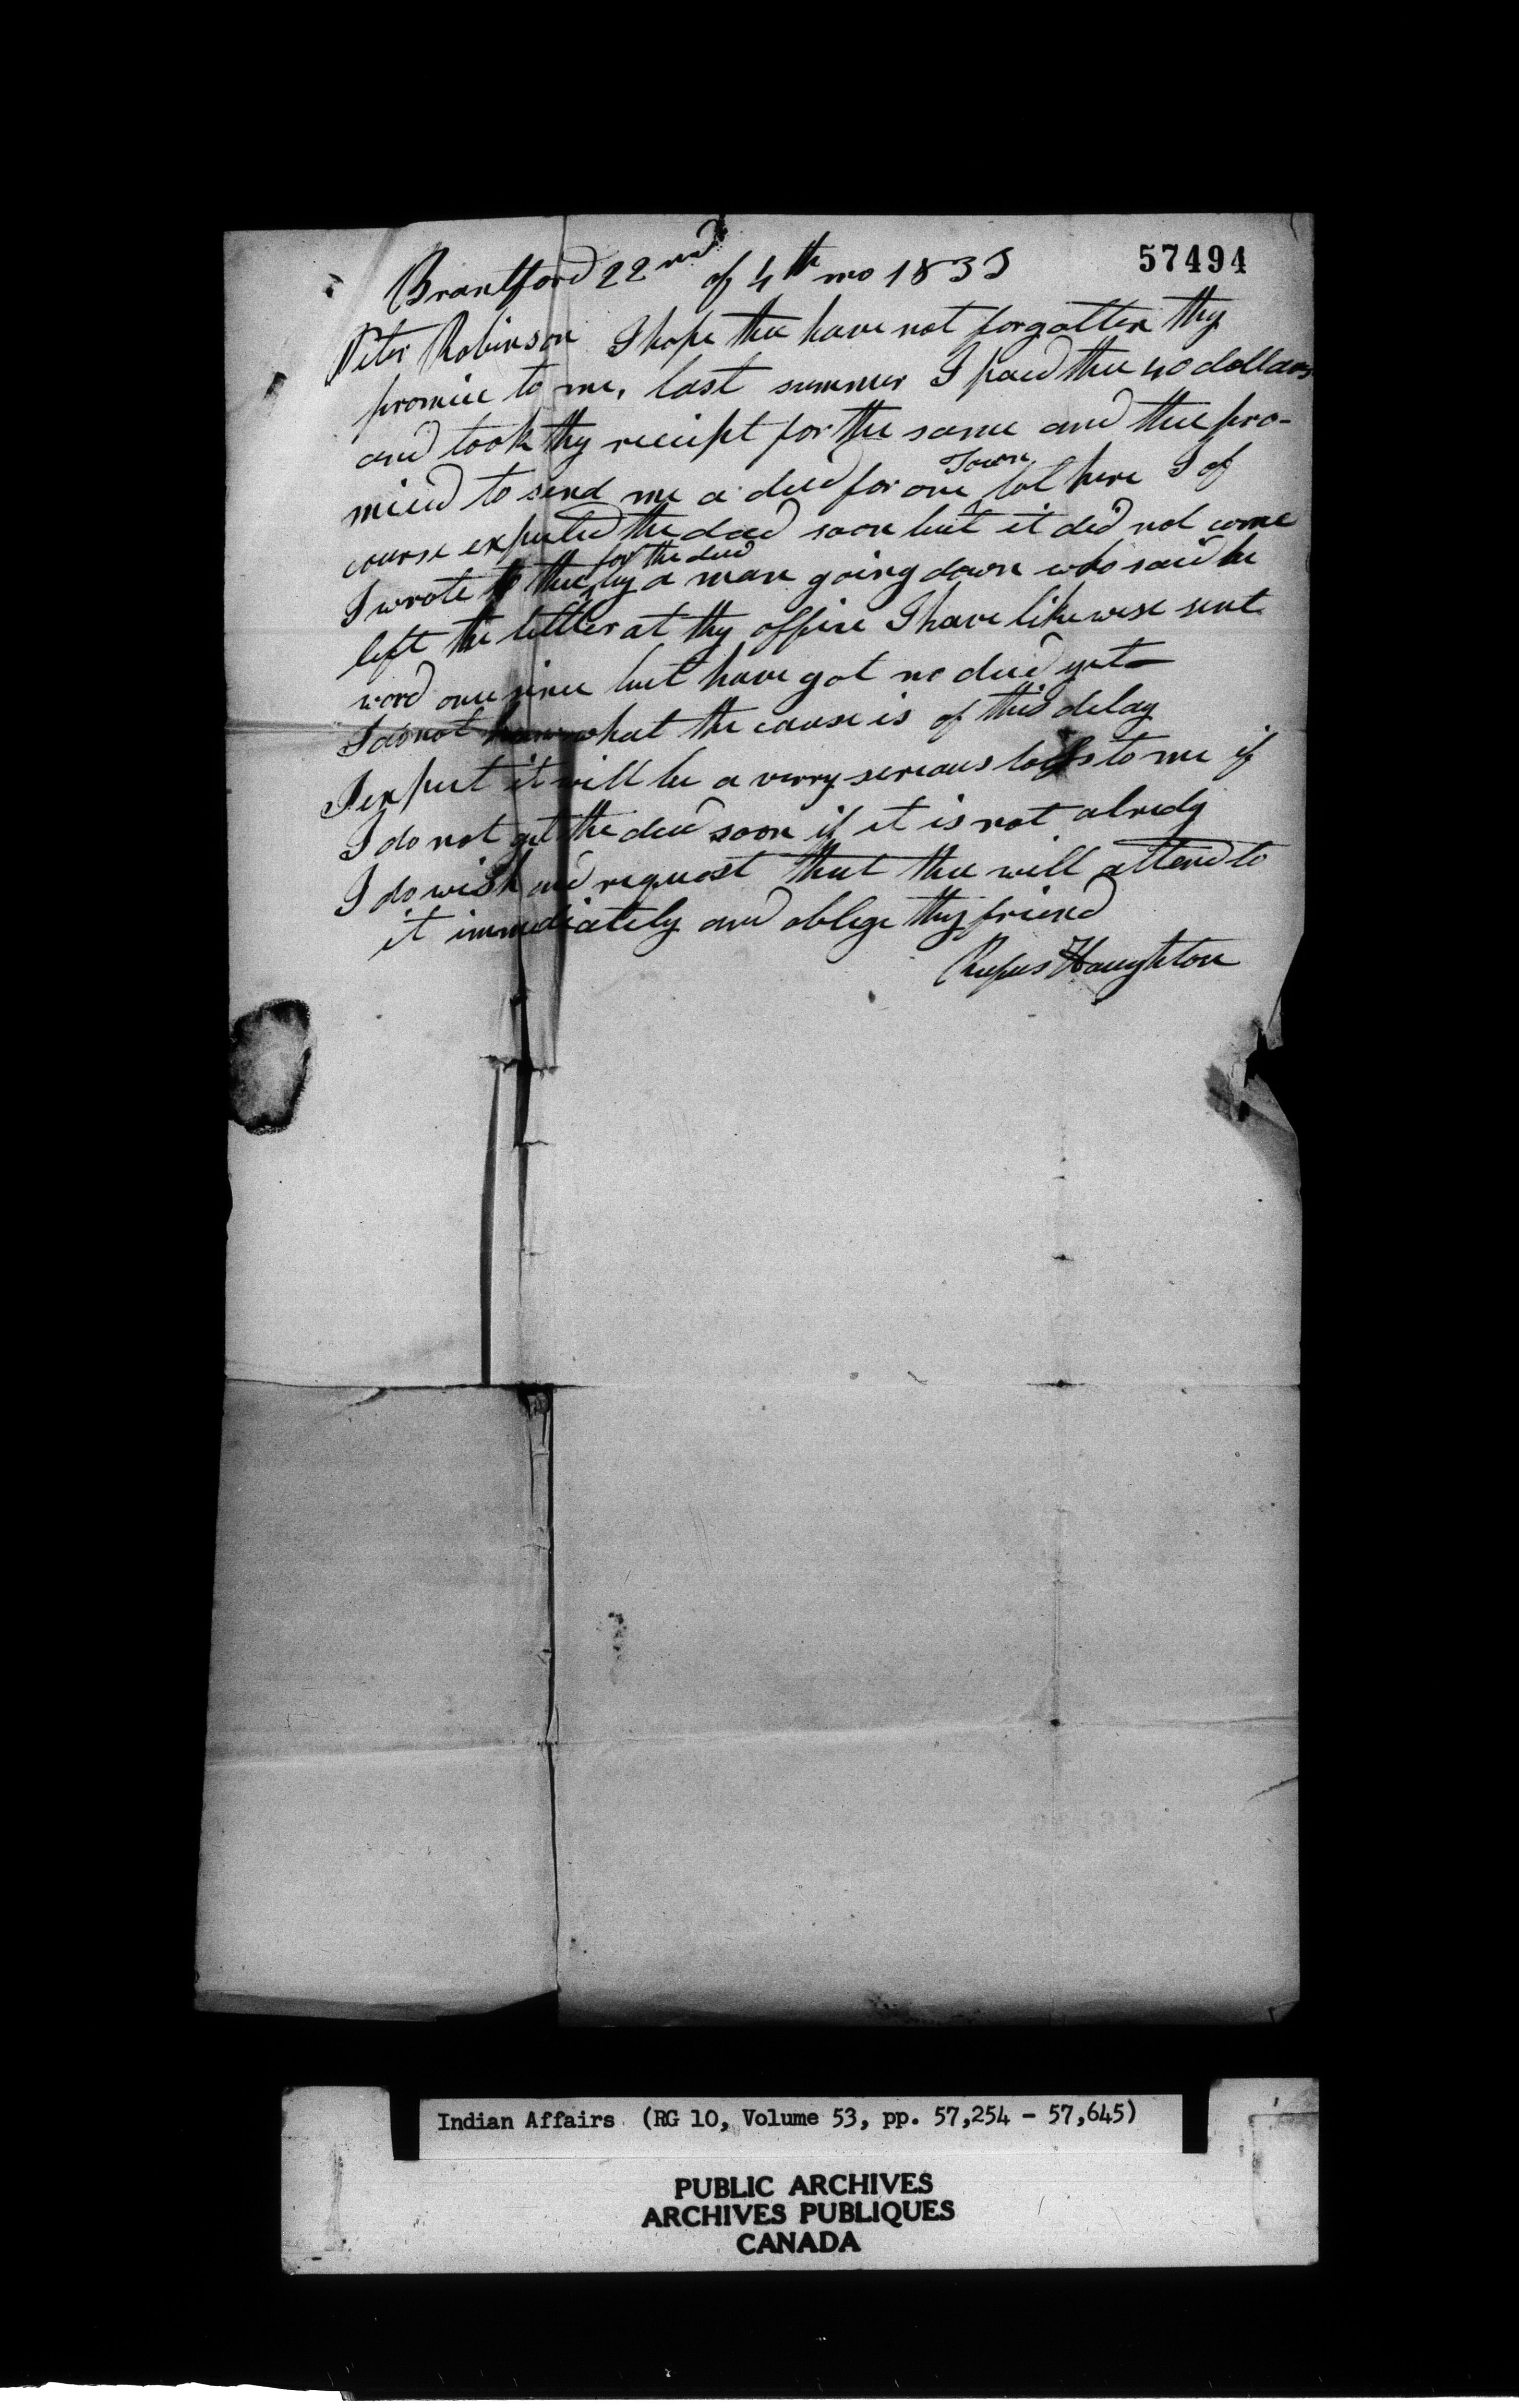 57494
Brantford 22nd of 4th mo 1833
Peter Robinson I hope thee have not forgotten thy
promice to me, last summer I paid thee 40 dollars
and took thy receipt for the same and thee pro-
miced to send me a deed for one Town lot here I of
course expected the deed soon but it did not come
I wrote to thee for the deed by a man going down who said he
left the letter at thy office I have likewise sent
word once since but have got no deed yet
I do not know what the cause is of this delay
I expect it will be a verry serious loss to me if
I do not get the deed soon if it is not alredy
I do wish and request that thee will attend to
it immediately and oblege thy friend
Rufus Houghton
Indian Affairs (RG 10, Volume 53, pp. 57,254 - 57,645)
PUBLIC ARCHIVES
ARCHIVES PUBLIQUES
CANADA